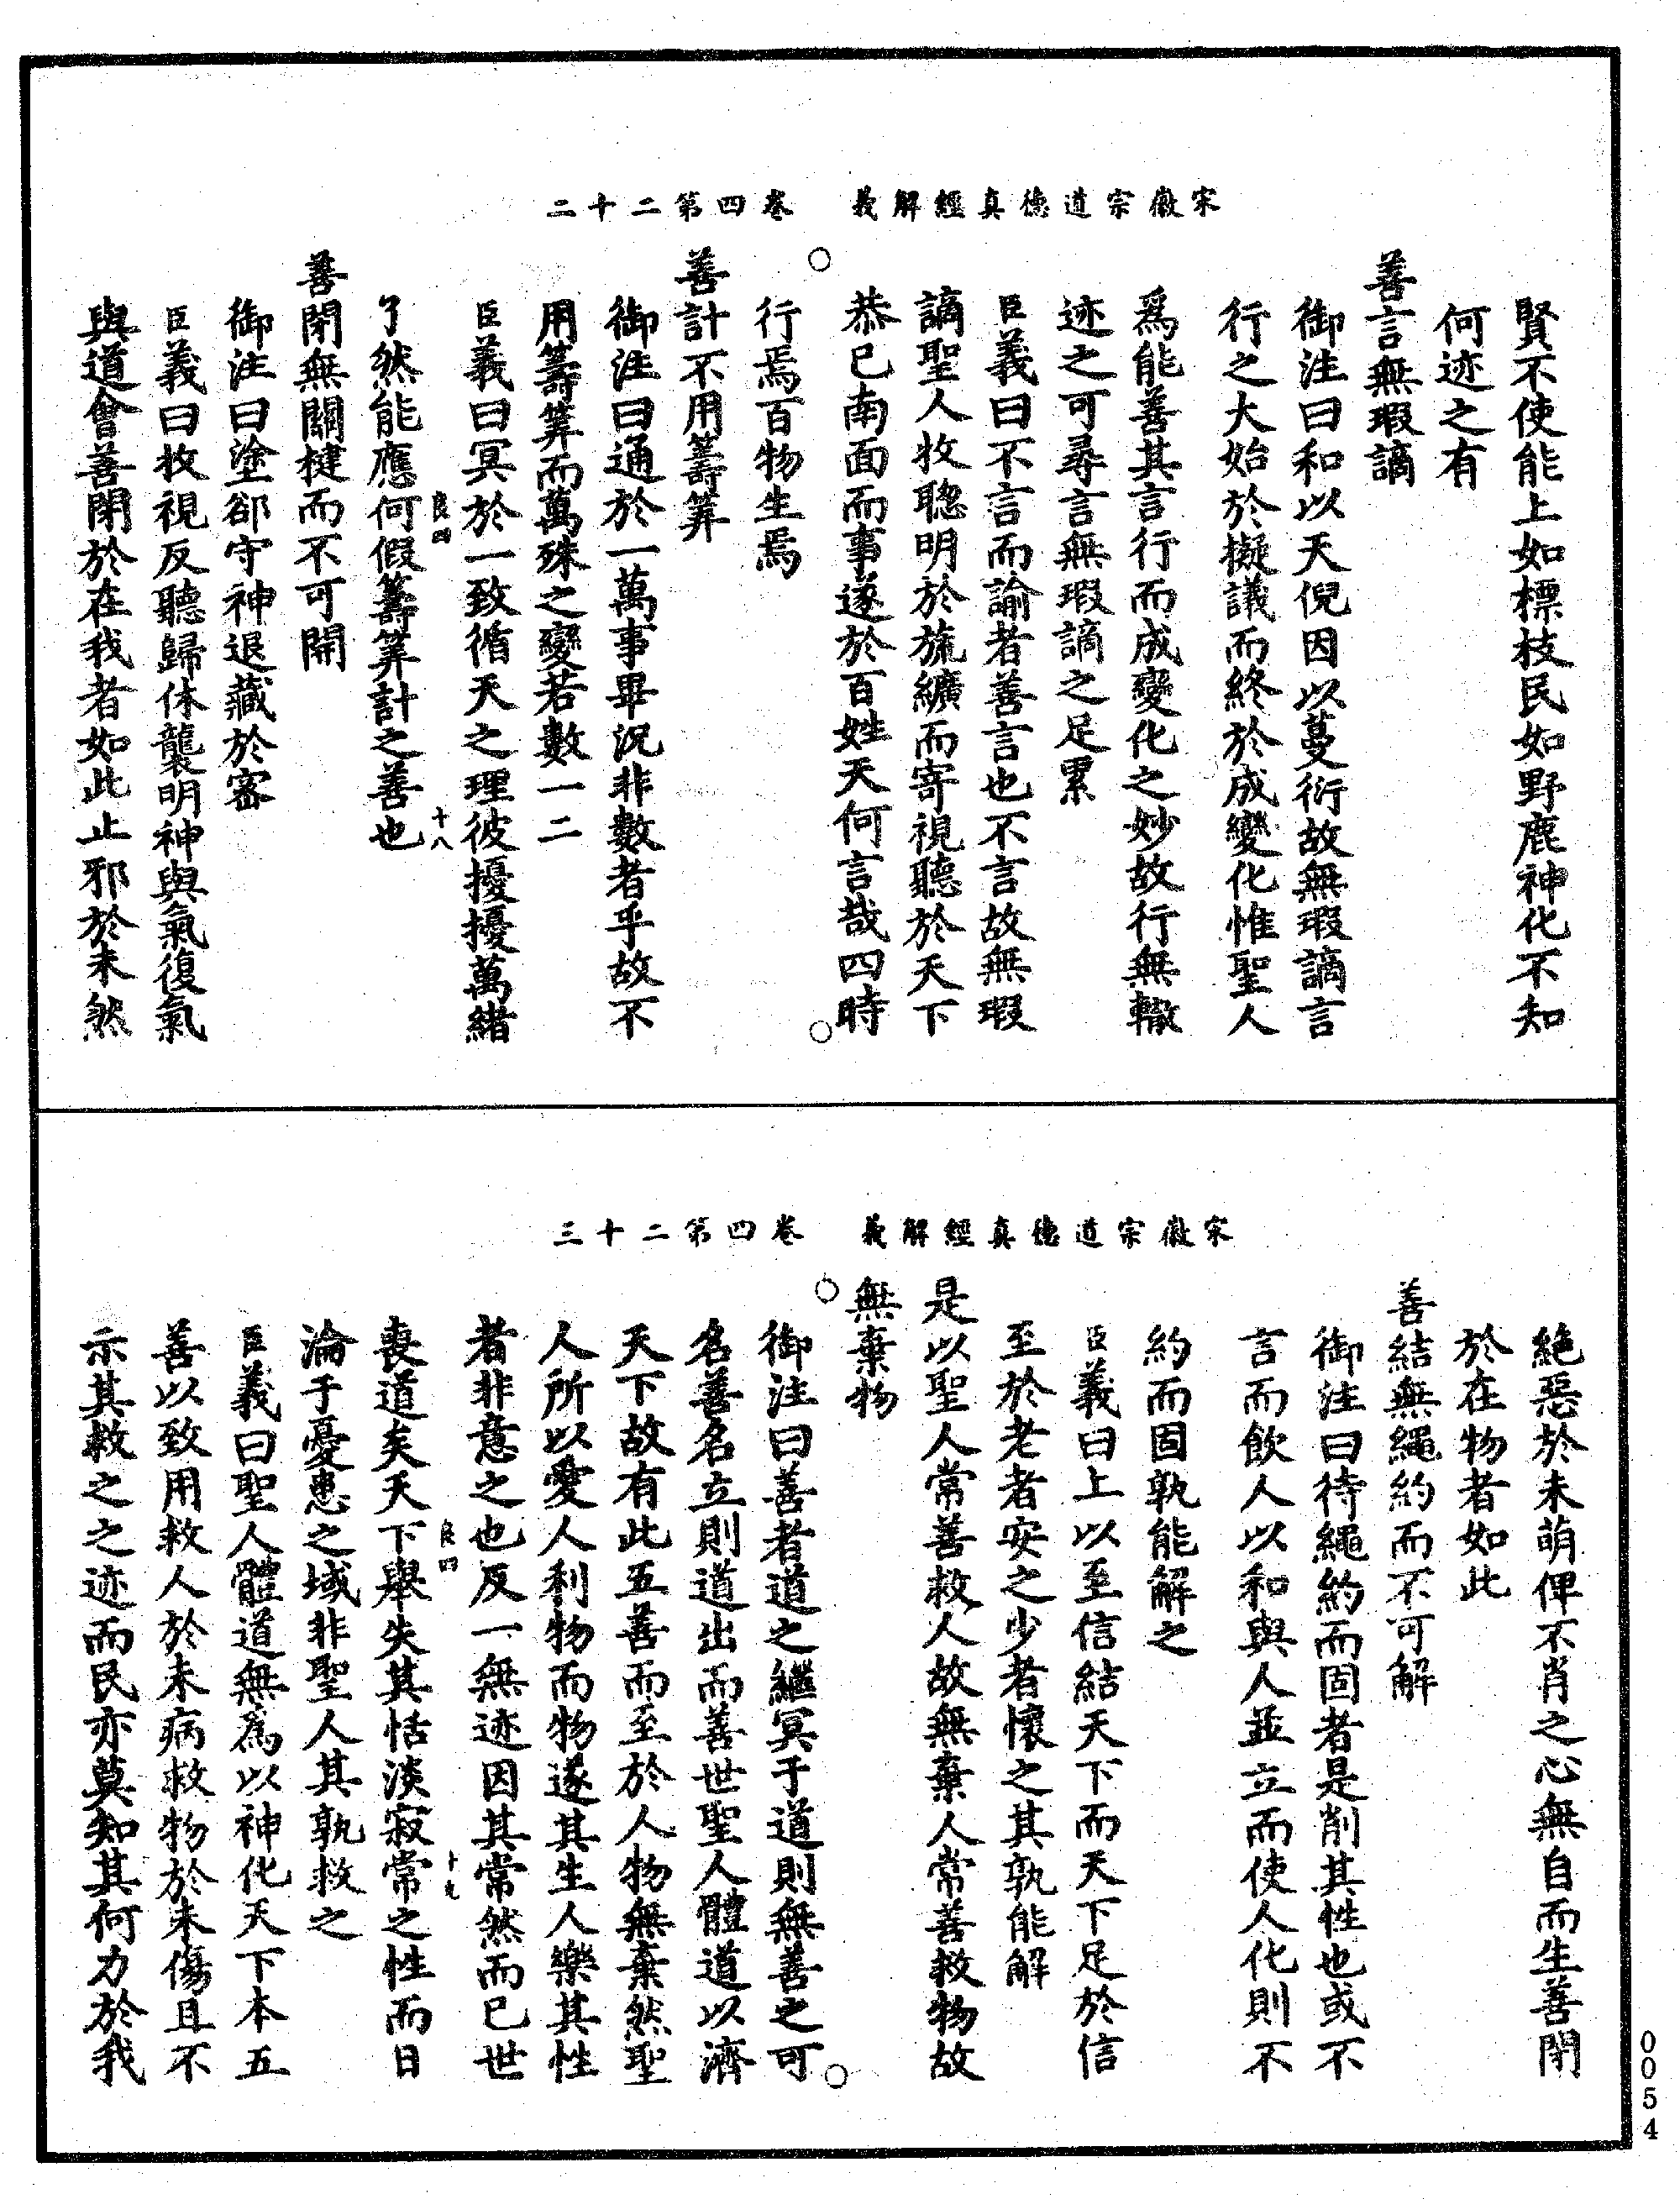 宋徽宗道德真經解義　卷四第二十二
賢不使能上如標枝民如野鹿神化不知
何迹之有
善言無瑕謫
御注曰和以天倪因以蔓衍故無瑕謫言
行之大始於擬議而終於成變化惟聖人
爲能善其言行而成變化之妙故行無轍
迹之可尋言無瑕謫之足累
臣義曰不言而諭者善言也不言故無瑕
謫聖人收聦明於旒纊而寄視聽於天下
恭已南面而事遂於百姓天何言哉四時
○　○
行焉百物生焉
善計不用籌筭
御注曰通於一萬事畢況非數者乎故不
用籌筭而萬殊之變若數一二
臣義曰冥於一致循天之理彼擾擾萬緒
良四　十八
了然能應何假籌筭計之善也
善閉無關楗而不可開
御注曰塗郤守神退藏於密
臣義曰收視反聽歸休襲明神與氣復氣
與道會善閉於在我者如此止邪於未然
宋徽宗道德真經解義　卷四第二十三
絶惡於未萌俾不肖之心無自而生善閉
於在物者如此
善結無繩約而不可解
御注曰待繩約而固者是削其性也或不
言而飲人以和與人並立而使人化則不
約而固孰能解之
臣義曰上以至信結天下而天下足於信
至於老者安之少者懷之其孰能解
是以聖人常善救人故無棄人常善救物故
無棄物
○　○
御注曰善者道之繼冥于道則無善之可
名善名立則道出而善世聖人體道以濟
天下故有此五善而至於人物無棄然聖
人所以愛人利物而物遂其生人樂其性
者非意之也反一無迹因其常然而已世
良四　十九
喪道矣天下舉失其恬淡寂常之性而日
淪于憂患之域非聖人其孰救之
臣義曰聖人體道無為以神化天下本五
善以致用救人於未病救物於未傷且不
示其救之之迹而民亦莫知其何力於我
0054